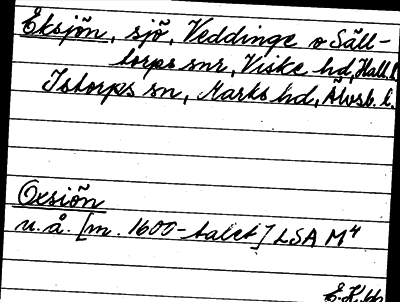 Eksjön, sjö, Veddinge o Säll-
torps snr, Viske hd, Hall. l.
Istorps sn, Marks hd, Älvsb. l.
Oxsiön
u. å. [m. 1600-talet] LSA M4
E.H.